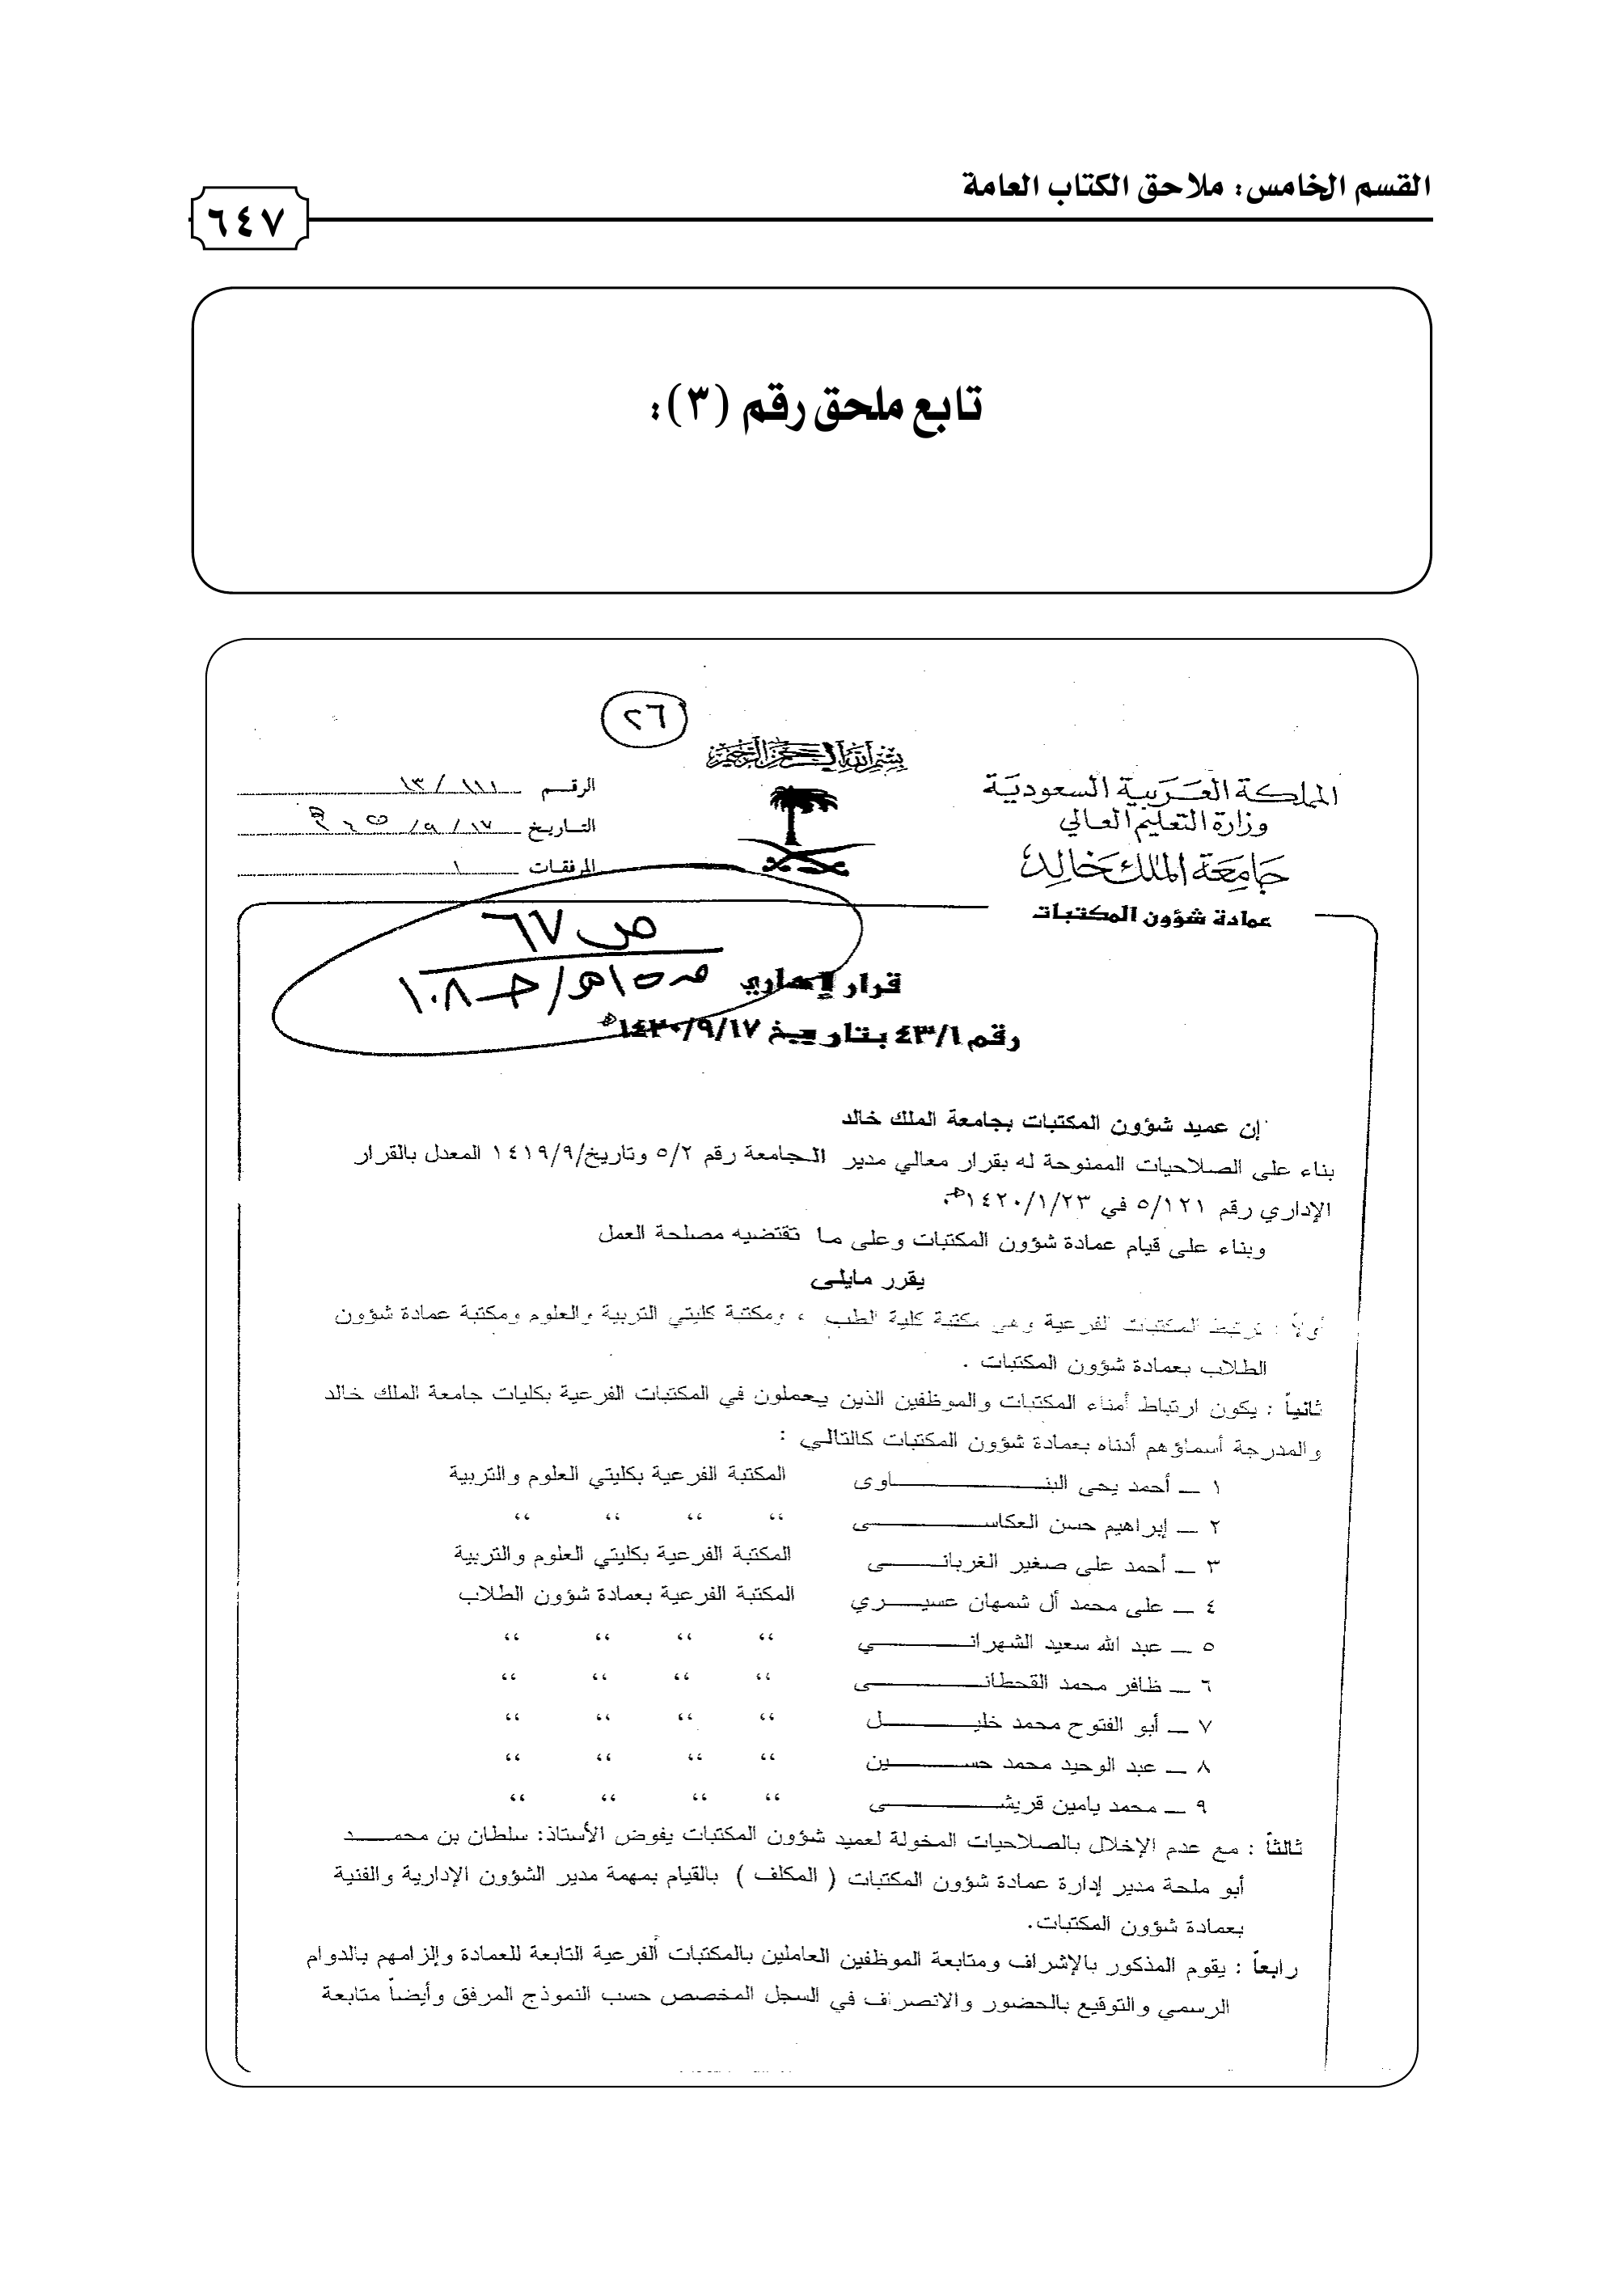 القسم الخامس: ملاحق الكتاب العامة
٦٤٧
تابع ملحق رقم (٣):
٢٦
بسم الله الرحمن الرحيم
المملكة العربية السعودية
وزارة التعليم العالي
جامعة الملك خالد
عمادة شؤون المكتبات
الرقم ١١١/ ١٣
التاريخ ١٧/ ٩/
المرفقات ١
ص ٦٧
قرار إداري
رقم ٤٣/١ بتاريخ ١٤٢٠/٩/١٧هـ
إن عميد شؤون المكتبات بجامعة الملك خالد
بناء على الصلاحيات الممنوحة له بقرار معالي مدير الجامعة رقم ٥/٢ وتاريخ/١٤١٩/٩ المعدل بالقرار
الإداري رقم ٥/١٢١ في ١٤٢٠/١/٢٣هـ.
وبناء على قيام عمادة شؤون المكتبات وعلى ما تقتضيه مصلحة العمل
يقرر مايلى
أولاً : ترتبط المكتبات الفرعية وهي مكتبة كلية الطب ، ومكتبة كليتي التربية والعلوم ومكتبة عمادة شؤون
الطلاب بعمادة شؤون المكتبات .
ثانياً : يكون ارتباط أمناء المكتبات والموظفين الذين يعملون في المكتبات الفرعية بكليات جامعة الملك خالد
والمدرجة أسماؤهم أدناه بعمادة شؤون المكتبات كالتالي :
١ ــ أحمد يحى البناوى المكتبة الفرعية بكليتي العلوم والتربية
٢ ــ إبراهيم حسن العكاسى “ “ “ “
٣ ــ أحمد على صغير الغربانى المكتبة الفرعية بكليتي العلوم والتربية
٤ ــ على محمد أل شمهان عسيري المكتبة الفرعية بعمادة شؤون الطلاب
٥ ــ عبد الله سعيد الشهراني “ “ “ “
٦ ــ ظافر محمد القحطانى “ “ “ “
٧ ــ أبو الفتوح محمد خليل “ “ “ “
٨ ــ عبد الوحيد محمد حسين “ “ “ “
٩ ــ محمد يامين قريشى “ “ “ “
ثالثاً : مع عدم الإخلال بالصلاحيات المخولة لعميد شؤون المكتبات يفوض الأستاذ: سلطان بن محمد
أبو ملحة مدير إدارة عمادة شؤون المكتبات ( المكلف ) بالقيام بمهمة مدير الشؤون الإدارية والفنية
بعمادة شؤون المكتبات.
رابعاً : يقوم المذكور بالإشراف ومتابعة الموظفين العاملين بالمكتبات الفرعية التابعة للعمادة وإلزامهم بالدوام
الرسمي والتوقيع بالحضور والانصراف في السجل المخصص حسب النموذج المرفق وأيضاً متابعة